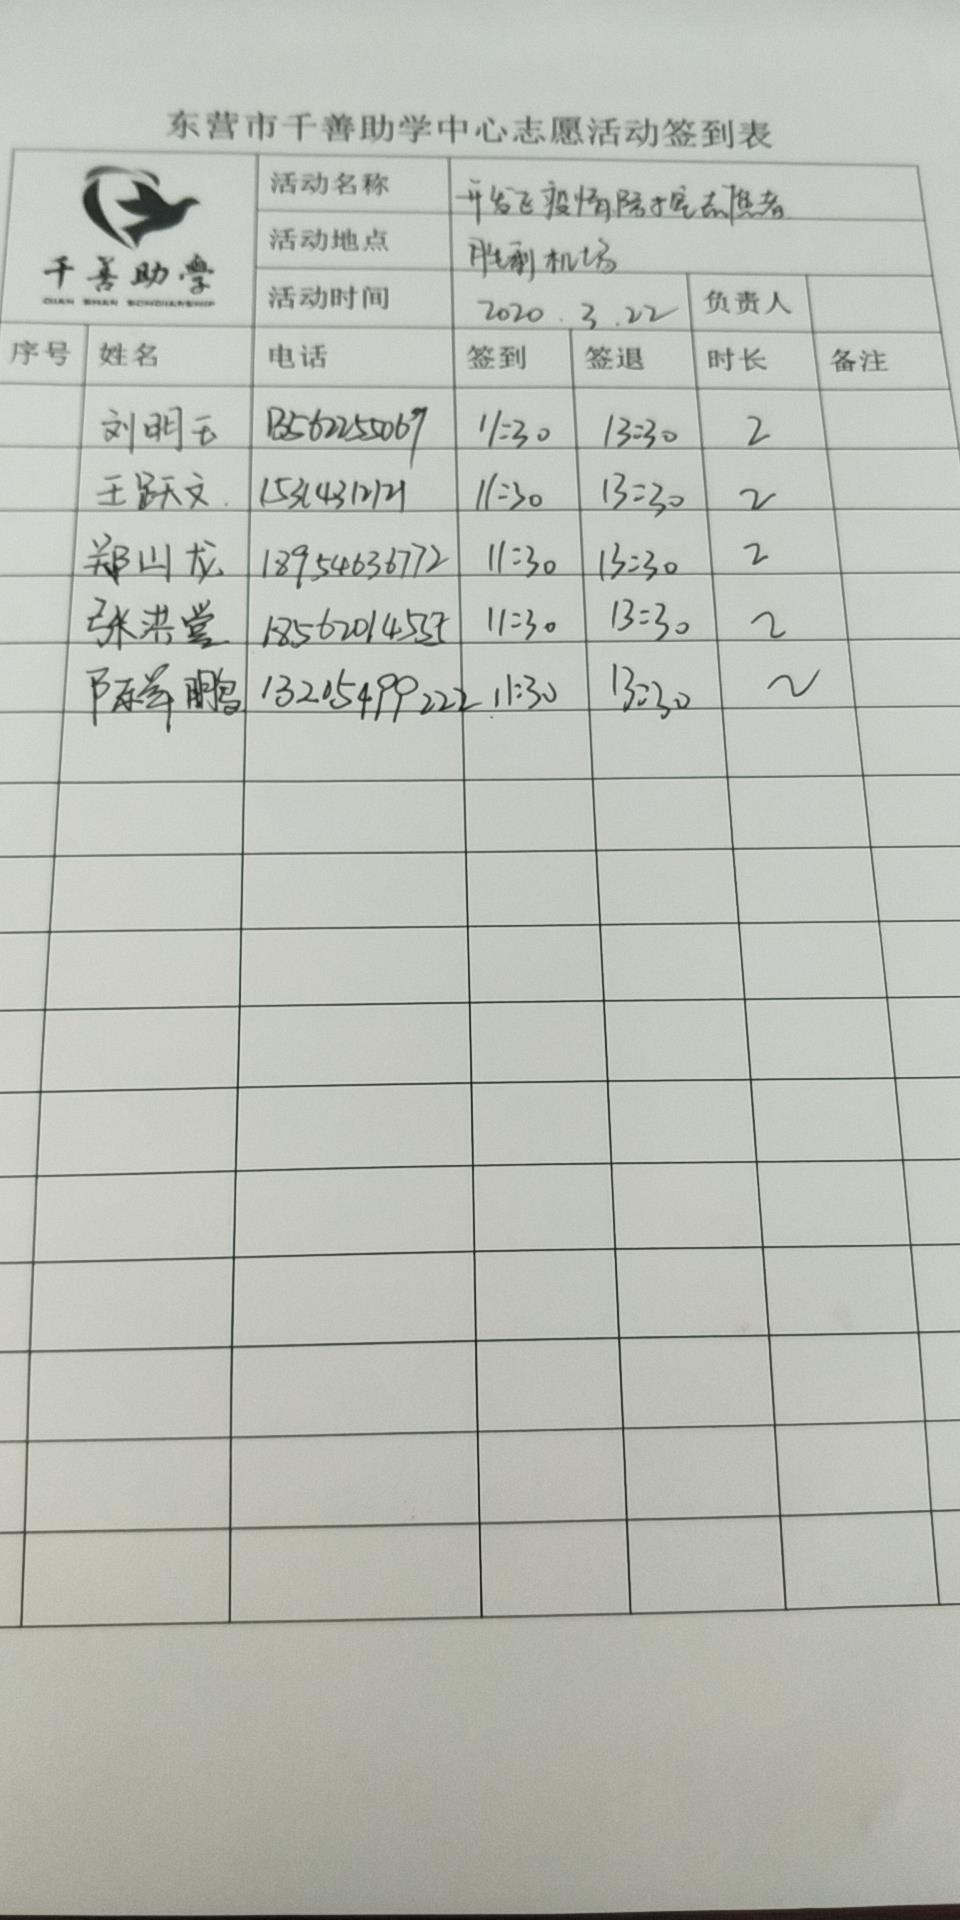 东营市千善助学中心志愿活动签到表
千善助学
QIAN SHAN SCHOLARSHIP
活动名称 开发区疫情防控志愿者
活动地点 胜利机场
活动时间 2020.3.22 负责人
序号 姓名 电话 签到 签退 时长 备注
刘明玉 13562255067 11:30 13:30 2
王跃文 15314312121 11:30 13:30 2
郑山龙 18954636772 11:30 13:30 2
张洪堂 11:30 13:30 2
陈 鹏 13205499222 11:30 13:30 2